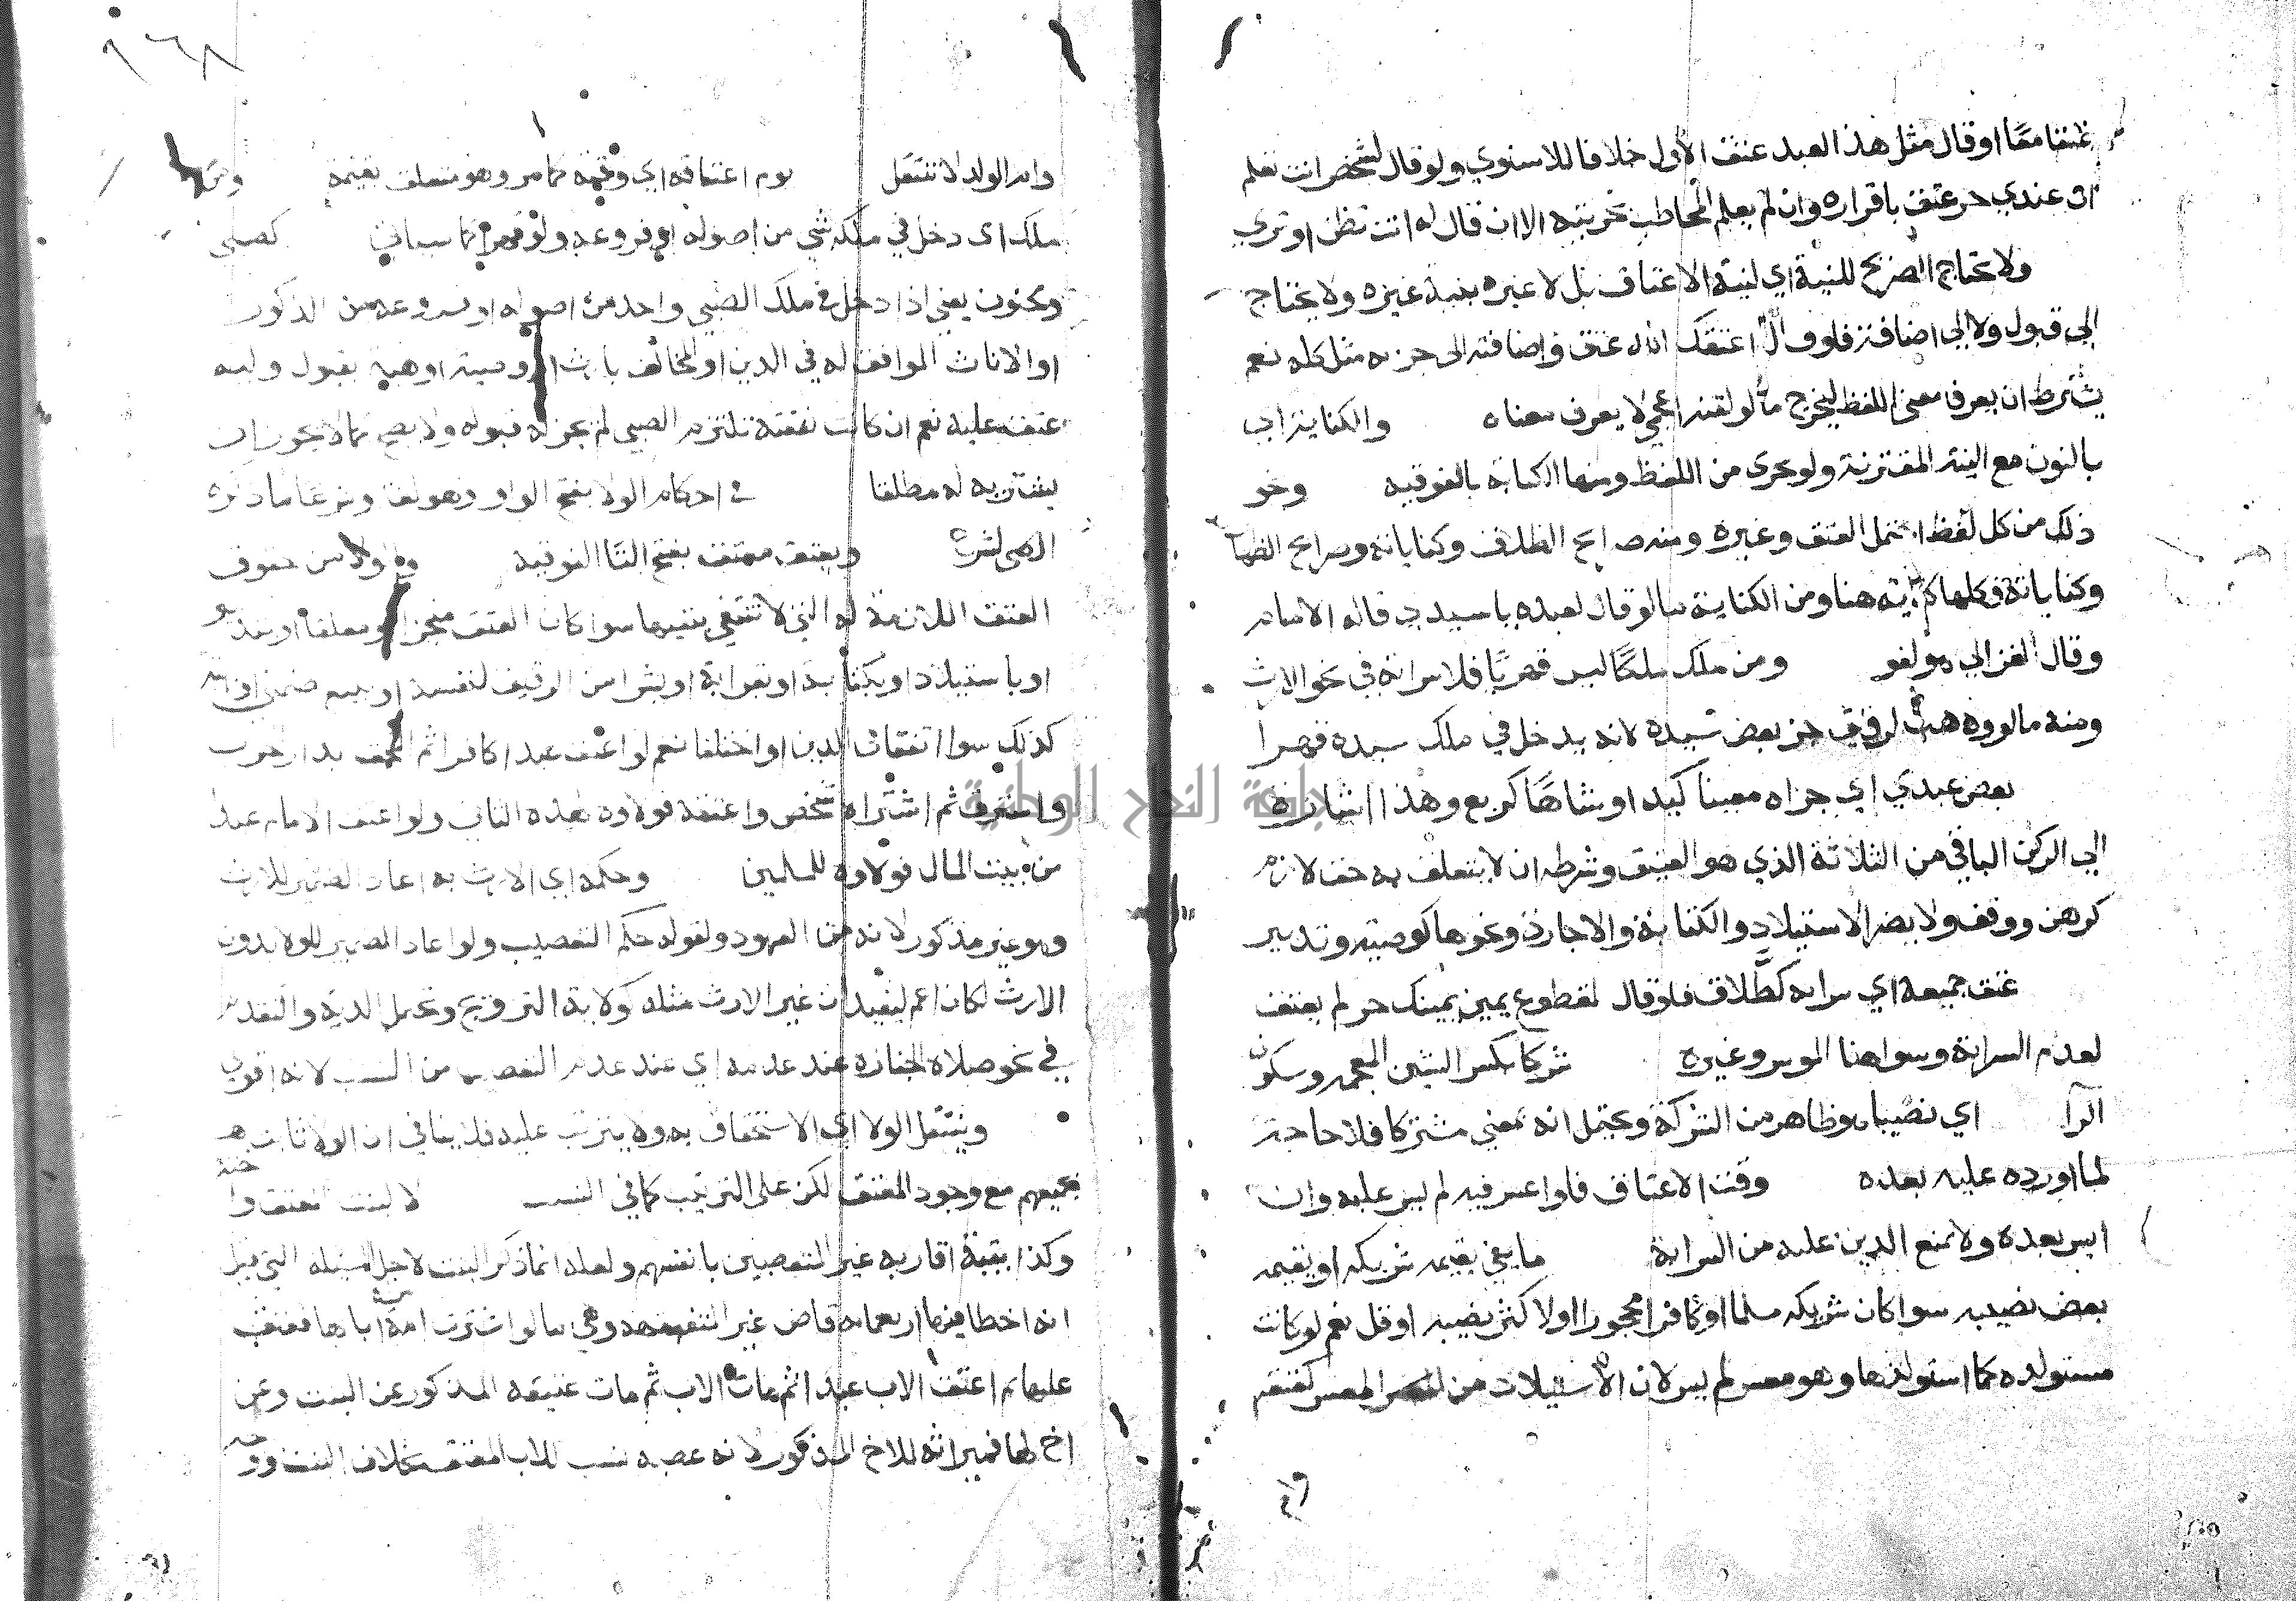 عتقا معا او قال مثل هذا العبد عتق الاول خلافا للاسنوي ولو قال لشخص انت تعلم
ان عندي حر عتق باقراره وان لم يعلم المخاطب حريته الا ان قال له انت تظن او ترى
ولا يحتاج الصريح للنية اي لنية الاعتاق بل لا غيره بنية غيره ولا يحتاج
الى قبول ولا الى اضافة فلو قال اعتقك الله عتق واضافته الى جزيه مثل كله نعم
يشترط ان يعرف معنى اللفظ ليخرج ما لو لقنه اعجمي لا يعرف معناه والكناية اي
بالنون مع النية المقترنة ولو بجزء من اللفظ ومنها الكتابة بالفوقية ونحو
ذلك من كل لفظ احتمل العتق وغيره ومنه صرايح الطلاق وكناياته وصرايح الظهار
وكناياته فكلها كناية هنا ومن الكناية ما لو قال لعبده يا سيدي قاله الامام
وقال الغزالي هو لغو ومن ملك ملكا ليس قهريا فلا سراية في نحو الارث
ومنه ما لو وهب لرقيق جزء بعض سيده لانه يدخل في ملك سيده قهرا
بعض عبدي اي جزاه معينا كيد او شايعا كربع وهذا اشارة
الى الركن الباقي من الثلاثة الذي هو العتيق وشرطه ان لا يتعلق به حق لازم
كرهن ووقف ولا يضر الاستيلاد والكتابة والاجارة ونحوها كوصيته وتدبير
عتق جميعه اي سراية كطلاق فلو قال لمقطوع يمين يمينك حر لم يعتق
لعدم السراية وسوا هنا الموسر وغيره شركا بكسر الشين المعجمة وسكون
الرا اي نصيبا وظاهر من الشركة ويحتمل انه بمعنى مشتركا فلا حاجة
لما اورده عليه بعده وقت الاعتاق فلو اعسر فيه لم يسر عليه وان
ايسر بعده ولا يمنع الدين عليه من السراية ما يفي بقيمة شريكه او بقيمة
بعض نصيبه سوا كان شريكه مسلما او كافرا محجورا اولا كثر نصيبه او قل نعم لو كانت
مستولدة كما استولدها وهو معسر لم يسر لان الاستيلاد من المعسر كعتقه
٩٦٨
وام الولد لا تنتقل يوم اعتاقه اي وقته كما مر وهو متعلق بقيمة ومن
ملك اي دخل في ملكه شي من اصوله او فروعه ولو قهرا كما سياتي كصبي
ومجنون يعني اذا دخل في ملك الصبي واحد من اصوله او فروعه من الذكور
او الاناث الموافق له في الدين او المخالف بارث او وصية او هبة بقبول وليه
عتق عليه نعم ان كانت نفقته تلتزم الصبي لم يجز له قبوله ولا يصح كما لا يجوز ان
يشتريه له مطلقا في احكام الولا بفتح الواو وهو لغة وشرعا ما ذكره
ويعتق معتق بفتح التا الفوقية ولا من حقوق
العتق اللازمة له التي لا تنتفي بنفيها سوا كان العتق منجزا او معلقا او بتدبير
او باستيلاد او بكتابة او بقرابة او بشرا من الرقيق لنفسه او ببيع ضمني
كذلك سوا اتفقا في الدين او اختلفا نعم لو اعتق عبدا كافرا ثم لحق بدار حرب
واسترق ثم اشتراه شخص واعتقه فولاوه لهذا الثاني ولو اعتق الامام عبدا
من بيت المال فولاوه للمسلمين وحكمه اي الارث به اعاد الضمير للارث
وهو غير مذكور لانه من المعهود ولقوله حكم التعصيب ولو اعاد الضمير للولا بدون
الارث لكان اعم ليفيد ان غير الارث مثله كولاية التزويج وتحمل الدية والتقدم
في نحو صلاة الجنازة عند عدمه اي عند عدم التعصيب من النسب لانه اقوى
وينتقل الولا اي الاستحقاق به ولا يترتب عليه فلا ينافي ان الولا ثابت
لجميعهم مع وجود المعتق لكن على الترتيب كما في النسب لا لبنت المعتق
وكذا بقية اقاربه غير المتعصبين بانفسهم ولعله انما ذكر البنت لاجل المسئلة التي قيل
انه اخطا فيها اربعماية قاض غير المتفقهة وهي ما لو اشترت امراة اباها فعتق
عليها ثم اعتق الاب عبدا ثم مات الاب ثم مات عتيقه المذكور عن البنت وعن
اخ لها فميراثه للاخ المذكور لانه عصبة نسب للاب المعتق بخلاف البنت